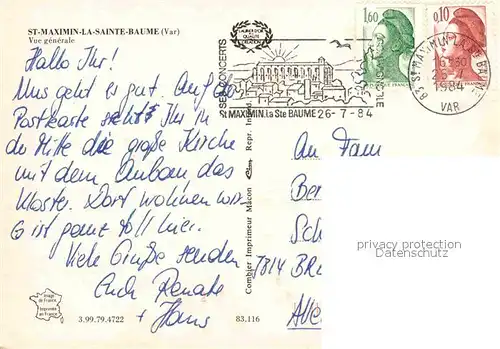 ST-MAXIMIN-LA-SAINTE-BAUME (Var)
Vue générale
Hallo Ihr!
Uns geht es gut. Auf der
Postkarte seht Ihr in
der Mitte die große Kirche
mit dem Anbau das
Kloster. Dort wohnen wir.
Es ist ganz toll hier.
Viele Grüße senden
Euch Renate
+ Hans
Image de France
Imprimée en France
3.99.79.4722
83.116
Combier Imprimeur Macon
Repr. Interd.
SES CONCERTS
St MAXIMIN.la Ste BAUME 26-7-84
1,60
0,10
83 ST MAXIMIN LA STE BAUME
16H30
26-7
1984
VAR
An Fam
Be
Sch
7814 BR
All
privacy protection
Datenschutz